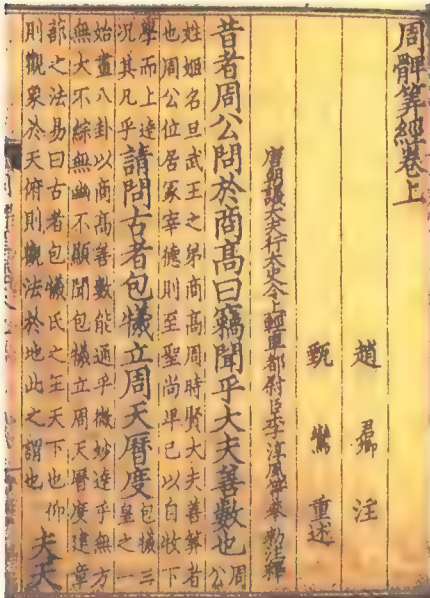 周髀筭經卷上
趙 君卿 注
甄 鸞 重述
唐朝議大夫行太史令上輕車都尉臣李淳風等奉 勑注釋
昔者周公問於商高曰竊聞乎大夫善數也 周
公
姓姬名旦武王之弟商高周時賢大夫善筭者
也周公位居冢宰德則至聖尚卑己以自牧下
學而上達
況其凡乎 請問古者包犧立周天曆度 包犧三
皇之一
始畫八卦以商高善數能通乎微妙達乎無方
無大不綜無幽不顯聞包犧立周天曆度建章
蔀之法易曰古者包犧氏之王天下也仰
則觀象於天俯則觀法於地此之謂也 夫天